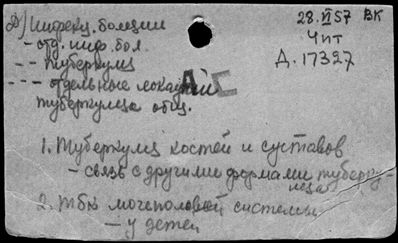 Д) инфекц. болезни
- отд. инф. бол.
-- туберкулез
--- отдельные локации
туберкулеза общ.
28.VI 57 ВК
Чит
Д. 17327
АС
1. Туберкулез костей и суставов
- связь с другими формами туберку-
леза
2. Тбк мочеполовой системы
- у детей